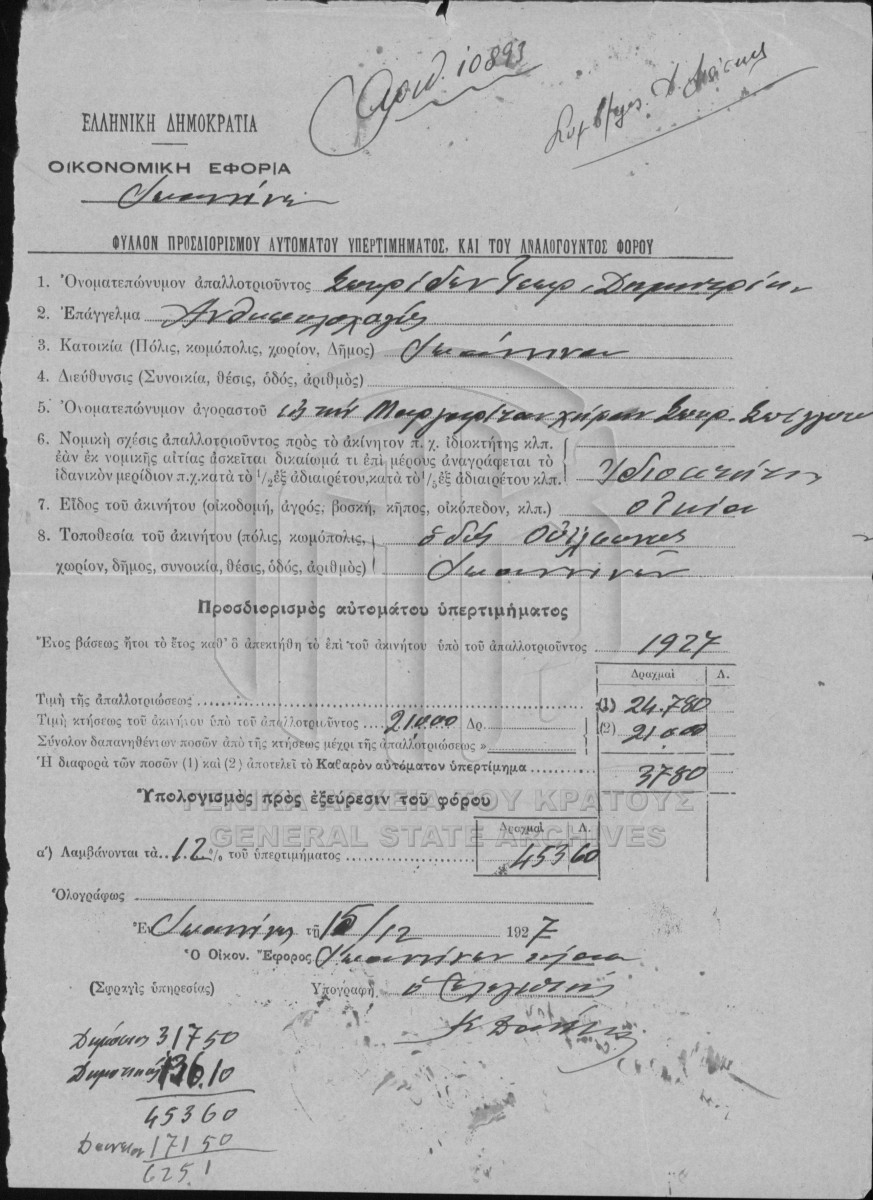 Αριθ. 10893
ΕΛΛΗΝΙΚΗ ΔΗΜΟΚΡΑΤΙΑ
ΟΙΚΟΝΟΜΙΚΗ ΕΦΟΡΙΑ
ΦΥΛΛΟΝ ΠΡΟΣΔΙΟΡΙΣΜΟΥ ΑΥΤΟΜΑΤΟΥ ΥΠΕΡΤΙΜΗΜΑΤΟΣ, ΚΑΙ ΤΟΥ ΑΝΑΛΟΓΟΥΝΤΟΣ ΦΟΡΟΥ
1. Ὀνοματεπώνυμον ἀπαλλοτριοῦντος Σπυρίδων Γεωρ. Δημητρίου
2. Ἐπάγγελμα
3. Κατοικία (Πόλις, κωμόπολις, χωρίον, Δῆμος) Ἰωάννινα
4. Διεύθυνσις (Συνοικία, θέσις, ὁδός, ἀριθμὸς)
5. Ὀνοματεπώνυμον ἀγοραστοῦ εἰς τὴν Μαργαρίταν χήραν Σπυρ.
6. Νομικὴ σχέσις ἀπαλλοτριοῦντος πρὸς τὸ ἀκίνητον π. χ. ἰδιοκτήτης κλπ.
ἐὰν ἐκ νομικῆς αἰτίας ἀσκεῖται δικαίωμά τι ἐπὶ μέρους ἀναγράφεται τὸ
ἰδανικὸν μερίδιον π.χ. κατὰ τὸ 1/2 ἐξ ἀδιαιρέτου, κατὰ τὸ 1/5 ἐξ ἀδιαιρέτου κλπ. Ἰδιοκτήτης
7. Εἶδος τοῦ ἀκινήτου (οἰκοδομή, ἀγρός, βοσκή, κῆπος, οἰκόπεδον, κλπ.) οἰκία
8. Τοποθεσία τοῦ ἀκινήτου (πόλις, κωμόπολις, ὁδός
χωρίον, δῆμος, συνοικία, θέσις, ὁδός, ἀριθμὸς) Ἰωαννίνων
Προσδιορισμὸς αὐτομάτου ὑπερτιμήματος
Ἔτος βάσεως ἤτοι τὸ ἔτος καθ' ὃ ἀπεκτήθη τὸ ἐπὶ τοῦ ἀκινήτου ὑπὸ τοῦ ἀπαλλοτριοῦντος 1927
Δραχμαὶ Λ.
Τιμὴ τῆς ἀπαλλοτριώσεως (1) 24.780
Τιμὴ κτήσεως τοῦ ἀκινήτου ὑπὸ τοῦ ἀπαλλοτριοῦντος 21000 Δρ. (2) 21000
Σύνολον δαπανηθέντων ποσῶν ἀπὸ τῆς κτήσεως μέχρι τῆς ἀπαλλοτριώσεως »
Ἡ διαφορὰ τῶν ποσῶν (1) καὶ (2) ἀποτελεῖ τὸ Καθαρὸν αὐτόματον ὑπερτίμημα 3780
Ὑπολογισμὸς πρὸς ἐξεύρεσιν τοῦ φόρου
ΓΕΝΙΚΑ ΑΡΧΕΙΑ ΤΟΥ ΚΡΑΤΟΥΣ
GENERAL STATE ARCHIVES
Δραχμαὶ Λ.
α') Λαμβάνονται τὰ 12 % τοῦ ὑπερτιμήματος 453 60
Ὁλογράφως
Ἐν Ἰωαννίνοις τῇ 15/12 1927
Ὁ Οἰκον. Ἔφορος
(Σφραγὶς ὑπηρεσίας) Ὑπογραφὴ
Δημόσιον 31750
Δημοτικὸς 136.10
45360
17150
6251